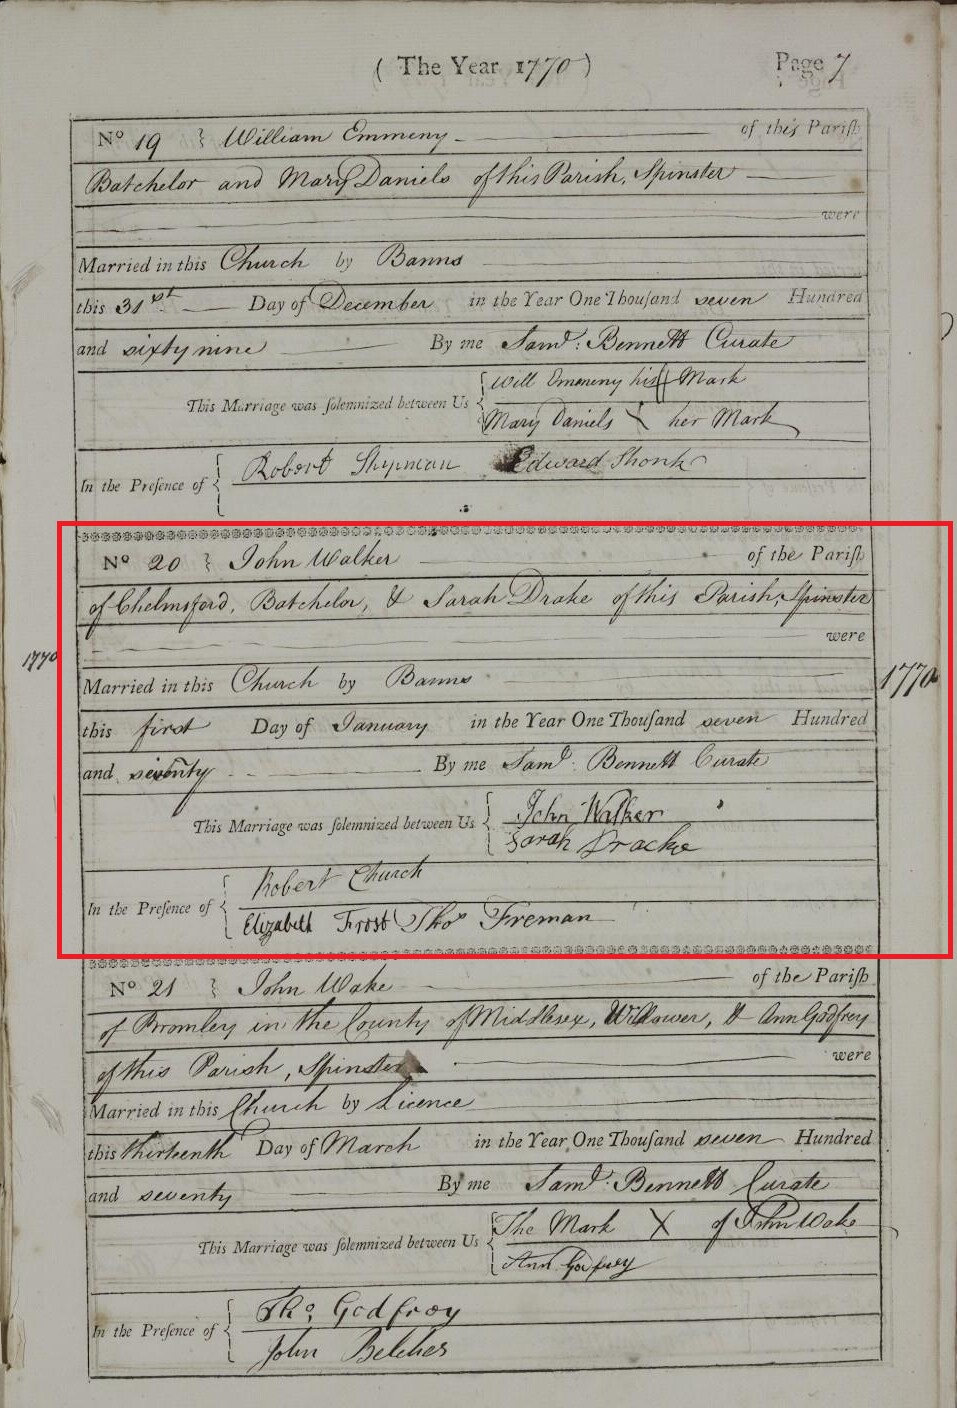 ( The Year 1770 )
Page 7
No 19 } William Emmeny of this Parish
Batchelor and Mary Daniels of this Parish, Spinster
were
Married in this Church by Banns
this 31st Day of December in the Year One Thousand seven Hundred
and sixty nine By me Saml: Bennett Curate
This Marriage was solemnized between Us { Will Emmeny his Mark
Mary Daniels X her Mark
In the Presence of { Robert Shipman Edward Shonk
No 20 } John Walker of the Parish
of Chelmsford, Batchelor, & Sarah Drake of this Parish, Spinster
were
1770
Married in this Church by Banns
1770
this first Day of January in the Year One Thousand seven Hundred
and seventy By me Saml: Bennett Curate
This Marriage was solemnized between Us { John Walker
Sarah Dracke
In the Presence of { Robert Church
Elizabeth Frost Thos Freman
No 21 } John Wake of the Parish
of Bromley in the County of Middlesex, Widower, & Ann Godfrey
of this Parish, Spinster were
Married in this Church by Licence
this thirteenth Day of March in the Year One Thousand seven Hundred
and seventy By me Saml: Bennett Curate
This Marriage was solemnized between Us { The Mark X of John Wake
Ann Godfrey
In the Presence of { Tho: Godfroy
John Belcher